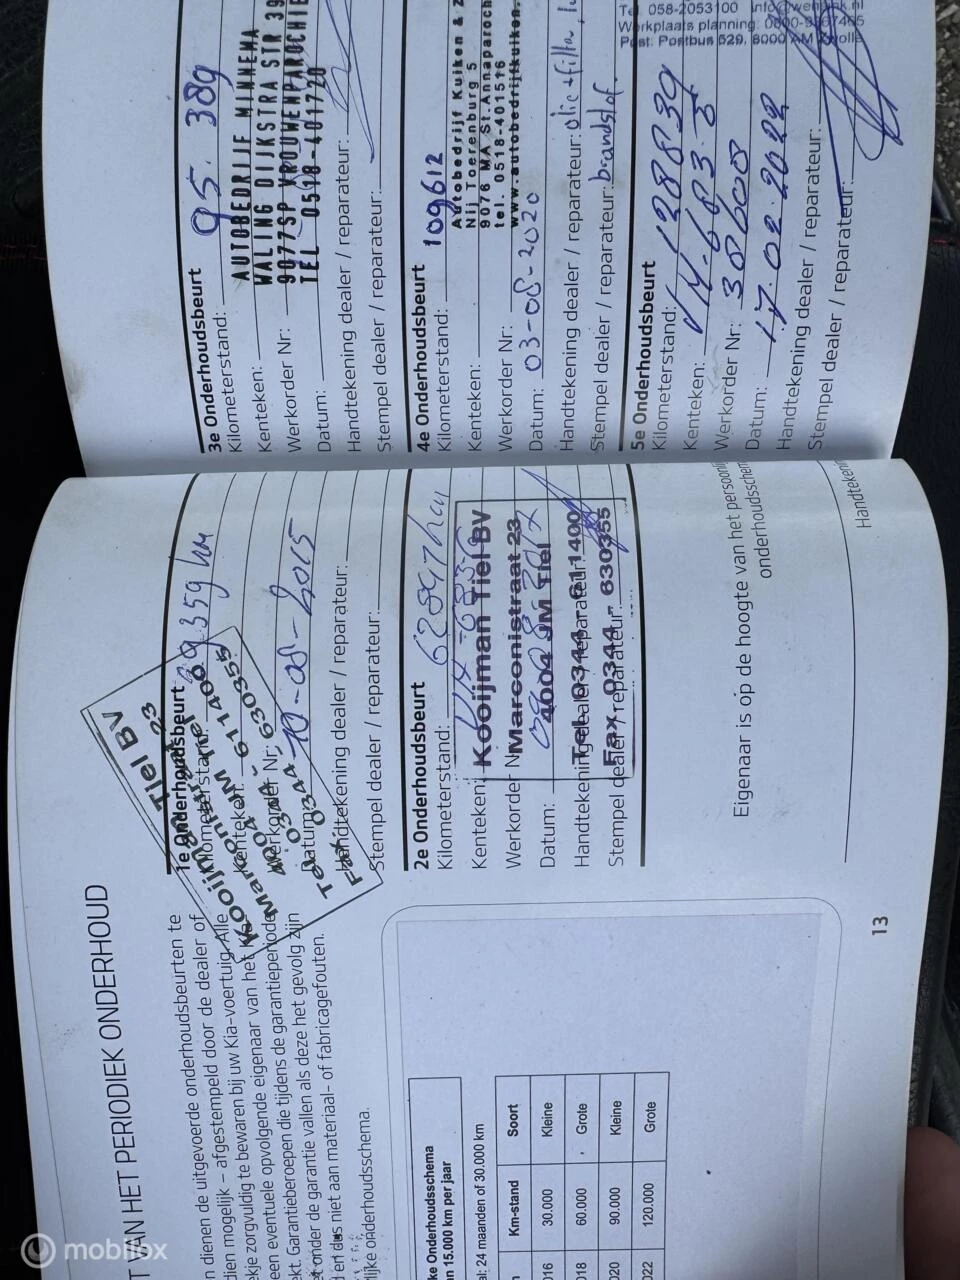 T VAN HET PERIODIEK ONDERHOUD
n dienen de uitgevoerde onderhoudsbeurten te
dien mogelijk – afgestempeld door de dealer of
kje zorgvuldig te bewaren bij uw Kia-voertuig. Alle
een eventuele opvolgende eigenaar van het
ekt. Garantieberoepen die tijdens de garantieperiode
onder de garantie vallen als deze het gevolg zijn
d en dus niet aan materiaal- of fabricagefouten.
lijke onderhoudsschema.
ke Onderhoudsschema
an 15.000 km per jaar
al: 24 maanden of 30.000 km
Km-stand Soort
016 30.000 Kleine
018 60.000 Grote
020 90.000 Kleine
022 120.000 Grote
13
1e Onderhoudsbeurt
Kilometerstand:
Kenteken:
Werkorder Nr:
Datum: 10-08-2015
Handtekening dealer / reparateur:
Stempel dealer / reparateur:
Kooijman Tiel BV
4004 JM Tiel
Tel. 0344 - 611400
Fax 0344 - 630355
2e Onderhoudsbeurt
Kilometerstand: 62897 km
Kenteken:
Werkorder N
Datum:
Handtekening dealer / reparateur:
Stempel dealer / reparateur:
Kooijman Tiel BV
Marconistraat 23
4004 JM Tiel
Tel. 0344 - 611400
Fax 0344 - 630355
Eigenaar is op de hoogte van het persoonlij
onderhoudsschem
Handtekenin
3e Onderhoudsbeurt
Kilometerstand: 95.389
Kenteken:
Werkorder Nr:
Datum:
Handtekening dealer / reparateur:
Stempel dealer / reparateur:
AUTOBEDRIJF MINNEMA
WALING DIJKSTRA STR 39
9077SP VROUWENPAROCHIE
TEL 0518-401720
4e Onderhoudsbeurt
Kilometerstand: 109612
Kenteken:
Werkorder Nr:
Datum: 03-08-2020
Handtekening dealer / reparateur: olie + filter,
Stempel dealer / reparateur: brandstof.
Autobedrijf Kuiken & Z
Nij Toerenburg 5
9076 MA St.Annaparoch
tel. 0518-401516
www.autobedrijfkuiken.
5e Onderhoudsbeurt
Kilometerstand: 128839
Kenteken:
Werkorder Nr:
Datum: 17.02.2022
Handtekening dealer / reparateur:
Stempel dealer / reparateur:
Tel. 058-2053100
Werkplaats planning:
Post: Postbus 529, 8000 AM Zwolle
mobilox